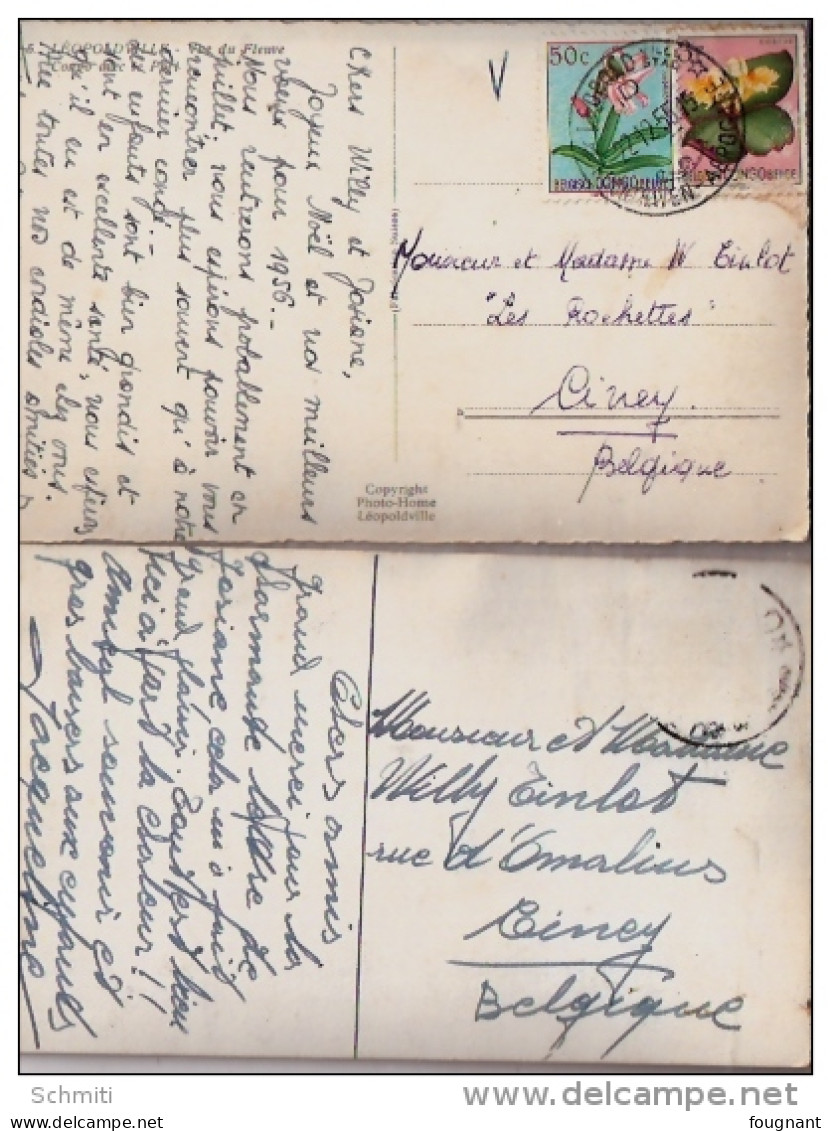 5. LÉOPOLDVILLE - Vue du Fleuve
Congo avec le
Chers Willy et Josiane,
Joyeux Noël et nos meilleurs
voeux pour 1956.-
Nous rentrerons probablement en
juillet, nous espérons pouvoir vous
rencontrer plus souvent qu'à notre
dernier congé.-
Les enfants sont bien grandis et
sont en excellente santé, nous espérons
qu'il en est de même chez vous.
toutes nos cordiales amitiés
50c
BELGISCH CONGO BELGE
Monsieur et Madame W Tinlot
"Les Rochettes"
Ciney
Belgique
Copyright
Photo-Home
Léopoldville
Chers amis
grand merci pour la
charmante lettre de
Josiane cela m'a fait
grand plaisir. Tout est bien
ici à part la chaleur !!
Amical souvenir et
gros baisers aux enfants
Jacqueline
Monsieur et Madame
Willy Tinlot
rue d'Omalius
Ciney
Belgique
Schmiti
delcampe.net
fougnant